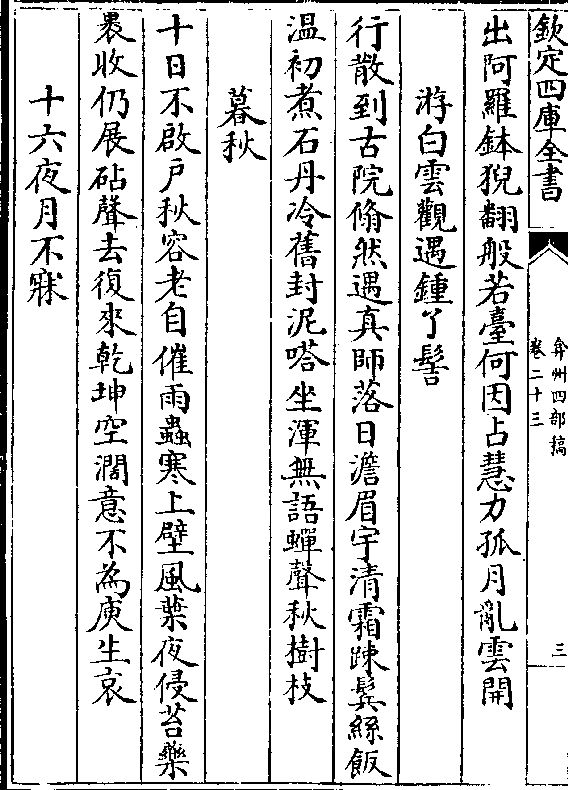 欽定四庫全書
弇州四部稿
卷二十三
三
出阿羅鉢猊翻般若臺何因占慧力孤月亂雲開
游白雲觀遇鍾丫髻
行散到古院翛然遇真師落日澹眉宇清霜踈鬓絲飯
温初煮石丹冷舊封泥嗒坐渾無語蟬聲秋樹枝
暮秋
十日不啟户秋容老自催雨蟲寒上壁風葉夜侵苔藥
裹收仍展砧聲去復來乾坤空濶意不為庾生哀
十六夜月不寐